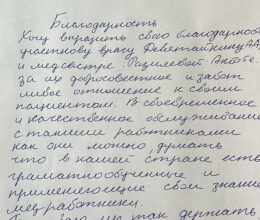 Благодарность.
Хочу выразить свою благодарнос
участковому врачу
и медсестре
за их добросовестное и забот
ливое отношение к своим
пациентам. В своевременное
и качественное обслуживание
с такими работниками
как они можно, думать
что в нашей стране есть
грамотнообученные и
применяющие свои знание
медработники.
так держать